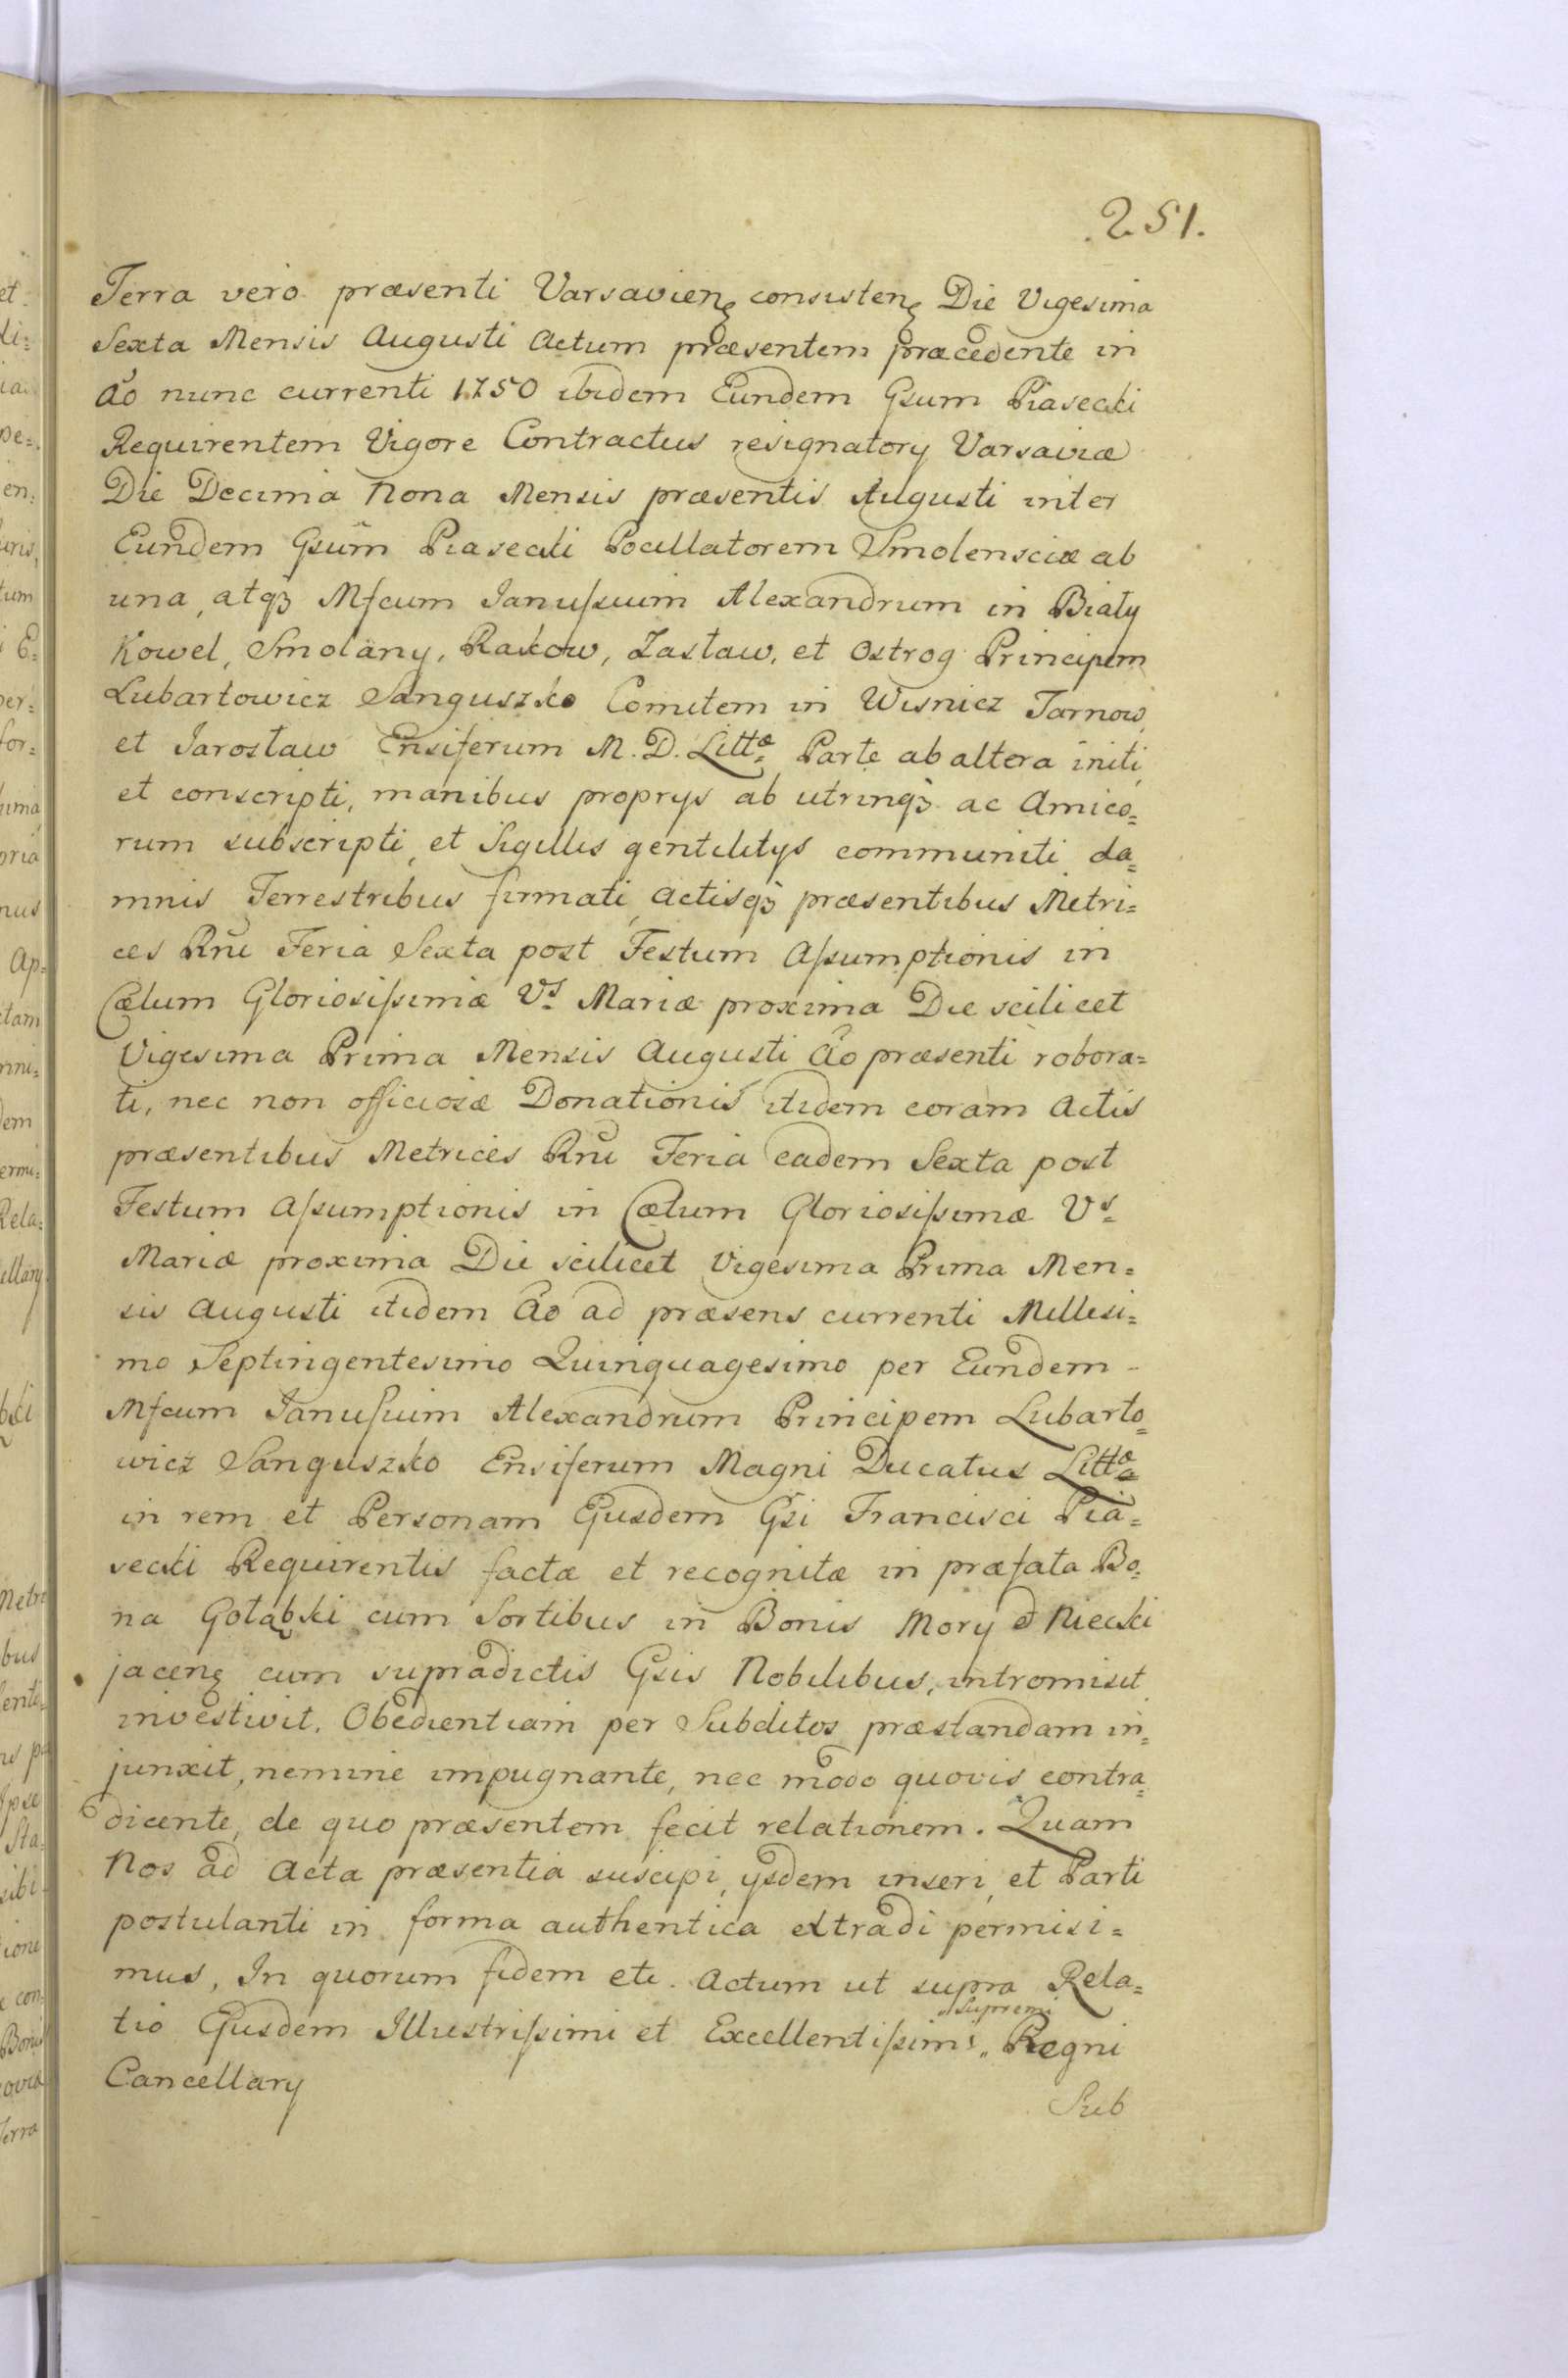 251.
Terra vero præsenti Varsavienę consistenę Die Vigesima
Sexta Mensis Augusti Actum præsentem præcedente in
Aõ nunc currenti 1750 ibidem Eundem Gsum Piasecki
Requirentem Vigore Contractus resignatory Varsaviæ
Die Decima Nona Mensis præsentis Augusti inter
Eundem Gsum̃ Piasecki Pocillatorem Smolensciæ ab
una, atqꝫ Mfcum Janussium Alexandrum in Biały
Kowel, Smolany, Rakow, Zasław, et Ostrog Principem
Lubartowicz Sanguszko Comitem in Wisnicz Tarnow,
et Jarosław Ensiferum M. D. Littæ Parte ab altera initi,
et conscripti, manibus proprys ab utrinqꝫ ac Amico=
rum subscripti, et Sigillis gentilitys communiti da=
mnis Terrestribus firmati, Actisqꝫ præsentibus Metri=
ces Rñi Feria Sexta post Festum Assumptionis in
Cælum Gloriosissimæ Vs Mariæ proxima Die scilicet
Vigesima Prima Mensis Augusti Aõ præsenti robora=
ti, nec non officiosæ Donationis itidem coram Actis
præsentibus Metrices Rñi Feria eadem Sexta post
Festum Assumptionis in Cælum Gloriosissimæ Vs
Mariæ proxima Die scilicet Vigesima Prima Men=
sis Augusti itidem Aõ ad præsens currenti Millesi=
mo Septingentesimo Quinquagesimo per Eundem
Mfcum Janussium Alexandrum Principem Lubarto=
wicz Sanguszko Ensiferum Magni Ducatus Littæ
in rem et Personam Ejusdem Gsi Francisci Pia=
secki Requirentis factæ et recognitæ in præfata Bo=
na Gołąbki cum Sortibus in Bonis Mory et Niecki
jacenę cum supradictis Gsis Nobilibus, intromisit
investivit. Obedientiam per Subditos præstandam in=
junxit, nemine impugnante, nec modo quovis contra=
dicente, de quo præsentem fecit relationem. Quam
Nos ad Acta præsentia suscipi, ysdem inseri, et Parti
postulanti in forma authentica extradi permisi=
mus, In quorum fidem etc. Actum ut supra Rela=
tio Ejusdem Illustrissimi et Excellentissimi „Supremi„ Regni
Cancellary
Sub